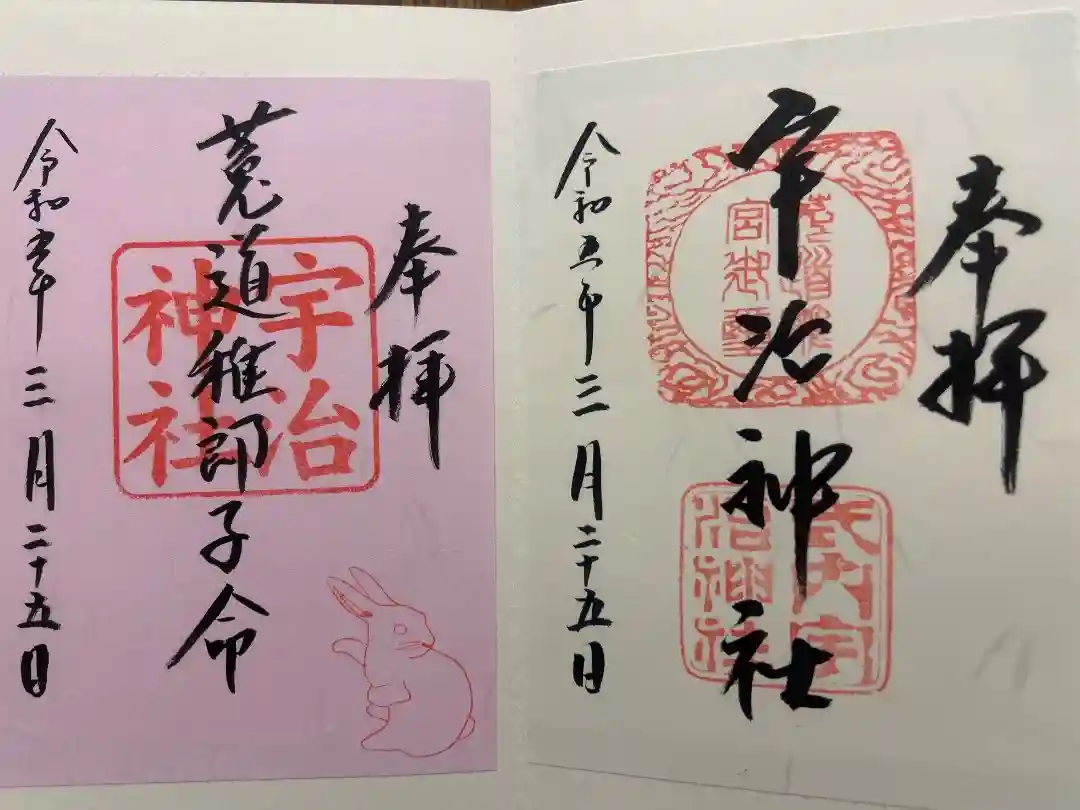 奉拝
宇治神社
宮御璽
式内宇
治神社
令和五年三月二十五日
奉拝
菟道稚郎子命
宇治
神社
令和五年三月二十五日